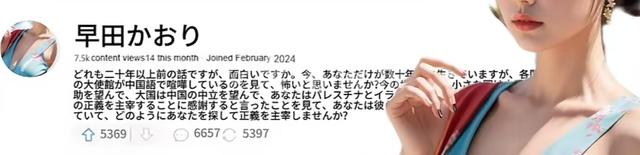 早田かおり
7.5k content views14 this month Joined February 2024
どれも二十年以上前の話ですが、面白いですか。今、あなただけが数十年 いますが、各国
の大使館が中国語で喧嘩しているのを見て、怖いと思いませんか?今の 小さな
助を望んで、大国は中国の中立を望んで、あなたはパレスチナとイラ
の正義を主宰することに感謝すると言ったことを見て、あなたは彼
ていて、どのようにあなたを探して正義を主宰しませんか?
5369 6657 5397